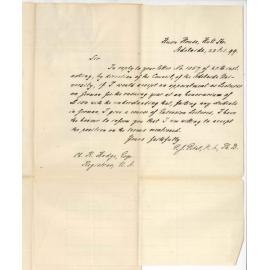 House, Hutt St.
Adelaide, 22/12/99.
Sir
In reply to your letter No. 1057 of 20th inst.
asking, by direction of the Council, of the Adelaide Uni-
versity, if I would accept an appointment as Lecturer
on German for the ensuing year at an honorarium of
£150 with the understanding that, failing any students
in German I give a course of Extension Lectures, I have
the honor to inform you that I am willing to accept
the position on the terms mentioned.
Yours faithfully
Ph. D.
C. R. Hodge, Esq.
Registrar, U. A.